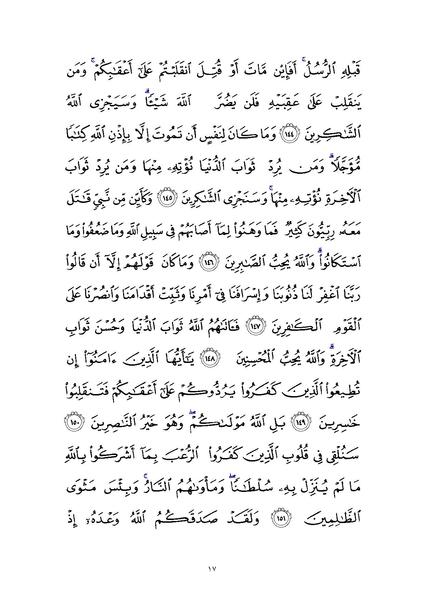 قَبۡلِهِ ٱلرُّسُلُۚ أَفَإِيْن مَّاتَ أَوۡ قُتِلَ ٱنقَلَبۡتُمۡ عَلَىٰٓ أَعۡقَٰبِكُمۡۚ وَمَن
يَنقَلِبۡ عَلَىٰ عَقِبَيۡهِ فَلَن يَضُرَّ ٱللَّهَ شَيۡـٔٗاۗ وَسَيَجۡزِي ٱللَّهُ
ٱلشَّٰكِرِينَ ١٤٤ وَمَا كَانَ لِنَفۡسٍ أَن تَمُوتَ إِلَّا بِإِذۡنِ ٱللَّهِ كِتَٰبٗا
مُّؤَجَّلٗاۗ وَمَن يُرِدۡ ثَوَابَ ٱلدُّنۡيَا نُؤۡتِهِۦ مِنۡهَا وَمَن يُرِدۡ ثَوَابَ
ٱلۡأٓخِرَةِ نُؤۡتِهِۦ مِنۡهَاۚ وَسَنَجۡزِي ٱلشَّٰكِرِينَ ١٤٥ وَكَأَيِّن مِّن نَّبِيّٖ قَٰتَلَ
مَعَهُۥ رِبِّيُّونَ كَثِيرٞ فَمَا وَهَنُواْ لِمَآ أَصَابَهُمۡ فِي سَبِيلِ ٱللَّهِ وَمَا ضَعُفُواْ وَمَا
ٱسۡتَكَانُواْۗ وَٱللَّهُ يُحِبُّ ٱلصَّٰبِرِينَ ١٤٦ وَمَا كَانَ قَوۡلَهُمۡ إِلَّآ أَن قَالُواْ
رَبَّنَا ٱغۡفِرۡ لَنَا ذُنُوبَنَا وَإِسۡرَافَنَا فِيٓ أَمۡرِنَا وَثَبِّتۡ أَقۡدَامَنَا وَٱنصُرۡنَا عَلَى
ٱلۡقَوۡمِ ٱلۡكَٰفِرِينَ ١٤٧ فَـَٔاتَىٰهُمُ ٱللَّهُ ثَوَابَ ٱلدُّنۡيَا وَحُسۡنَ ثَوَابِ
ٱلۡأٓخِرَةِۗ وَٱللَّهُ يُحِبُّ ٱلۡمُحۡسِنِينَ ١٤٨ يَٰٓأَيُّهَا ٱلَّذِينَ ءَامَنُوٓاْ إِن
تُطِيعُواْ ٱلَّذِينَ كَفَرُواْ يَرُدُّوكُمۡ عَلَىٰٓ أَعۡقَٰبِكُمۡ فَتَنقَلِبُواْ
خَٰسِرِينَ ١٤٩ بَلِ ٱللَّهُ مَوۡلَىٰكُمۡۖ وَهُوَ خَيۡرُ ٱلنَّٰصِرِينَ ١٥٠
سَنُلۡقِي فِي قُلُوبِ ٱلَّذِينَ كَفَرُواْ ٱلرُّعۡبَ بِمَآ أَشۡرَكُواْ بِٱللَّهِ
مَا لَمۡ يُنَزِّلۡ بِهِۦ سُلۡطَٰنٗاۖ وَمَأۡوَىٰهُمُ ٱلنَّارُۚ وَبِئۡسَ مَثۡوَى
ٱلظَّٰلِمِينَ ١٥١ وَلَقَدۡ صَدَقَكُمُ ٱللَّهُ وَعۡدَهُۥٓ إِذۡ
١٧